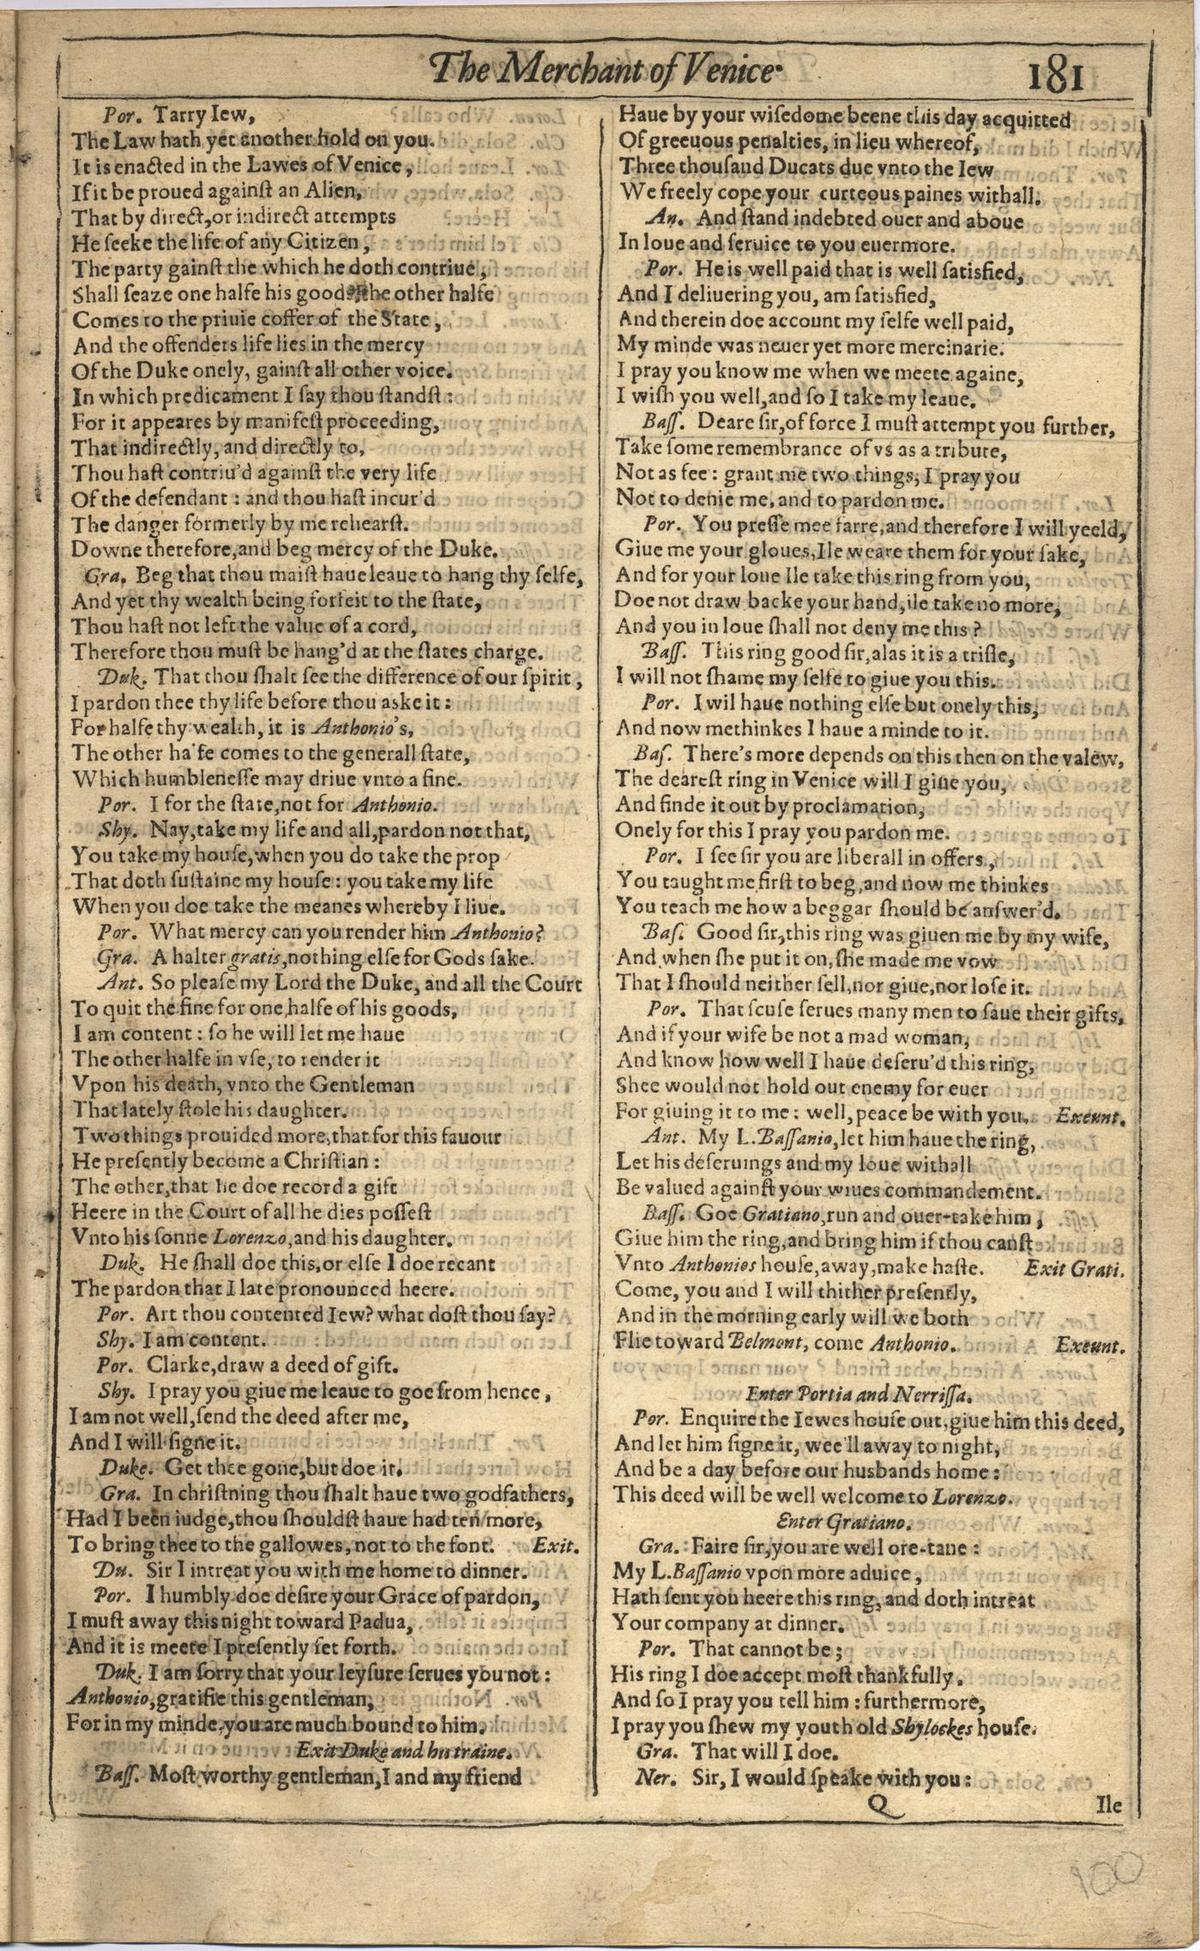 The Merchant of Venice.
181
Por. Tarry Iew,
The Law hath yet another hold on you.
It is enacted in the Lawes of Venice,
If it be proued against an Alien,
That by direct, or indirect attempts
He seeke the life of any Citizen,
The party gainst the which he doth contriue,
Shall seaze one halfe his goods, the other halfe
Comes to the priuie coffer of the State,
And the offenders life lies in the mercy
Of the Duke onely, gainst all other voice.
In which predicament I say thou standst:
For it appeares by manifest proceeding,
That indirectly, and directly to,
Thou hast contriu'd against the very life
Of the defendant: and thou hast incur'd
The danger formerly by me rehearst.
Downe therefore, and beg mercy of the Duke.
Gra. Beg that thou maist haue leaue to hang thy selfe,
And yet thy wealth being forfeit to the state,
Thou hast not left the value of a cord,
Therefore thou must be hang'd at the states charge.
Duk. That thou shalt see the difference of our spirit,
I pardon thee thy life before thou aske it:
For halfe thy wealth, it is Anthonio's,
The other halfe comes to the generall state,
Which humblenesse may driue vnto a fine.
Por. I for the state, not for Anthonio.
Shy. Nay, take my life and all, pardon not that,
You take my house, when you do take the prop
That doth sustaine my house: you take my life
When you doe take the meanes whereby I liue.
Por. What mercy can you render him Anthonio?
Gra. A halter gratis, nothing else for Gods sake.
Ant. So please my Lord the Duke, and all the Court
To quit the fine for one halfe of his goods,
I am content: so he will let me haue
The other halfe in vse, to render it
Vpon his death, vnto the Gentleman
That lately stole his daughter.
Two things prouided more, that for this fauour
He presently become a Christian:
The other, that he doe record a gift
Heere in the Court of all he dies possest
Vnto his sonne Lorenzo, and his daughter.
Duk. He shall doe this, or else I doe recant
The pardon that I late pronounced heere.
Por. Art thou contented Iew? what dost thou say?
Shy. I am content.
Por. Clarke, draw a deed of gift.
Shy. I pray you giue me leaue to goe from hence,
I am not well, send the deed after me,
And I will signe it.
Duke. Get thee gone, but doe it.
Gra. In christning thou shalt haue two godfathers,
Had I been iudge, thou shouldst haue had ten more,
To bring thee to the gallowes, not to the font. Exit.
Du. Sir I intreat you with me home to dinner.
Por. I humbly doe desire your Grace of pardon,
I must away this night toward Padua,
And it is meete I presently set forth.
Duk. I am sorry that your leysure serues you not:
Anthonio, gratifie this gentleman,
For in my minde, you are much bound to him.
Exit Duke and his traine.
Bass. Most worthy gentleman, I and my friend
Haue by your wisedome beene this day acquitted
Of greeuous penalties, in lieu whereof,
Three thousand Ducats due vnto the Iew
We freely cope your curteous paines withall.
An. And stand indebted ouer and aboue
In loue and seruice to you euermore.
Por. He is well paid that is well satisfied,
And I deliuering you, am satisfied,
And therein doe account my selfe well paid,
My minde was neuer yet more mercinarie.
I pray you know me when we meete againe,
I wish you well, and so I take my leaue.
Bass. Deare sir, of force I must attempt you further,
Take some remembrance of vs as a tribute,
Not as fee: grant me two things, I pray you
Not to denie me, and to pardon me.
Por. You presse mee farre, and therefore I will yeeld,
Giue me your gloues, Ile weare them for your sake,
And for your loue Ile take this ring from you,
Doe not draw backe your hand, ile take no more,
And you in loue shall not deny me this?
Bass. This ring good sir, alas it is a trifle,
I will not shame my selfe to giue you this.
Por. I wil haue nothing else but onely this,
And now methinkes I haue a minde to it.
Bas. There's more depends on this then on the valew,
The dearest ring in Venice will I giue you,
And finde it out by proclamation,
Onely for this I pray you pardon me.
Por. I see sir you are liberall in offers,
You taught me first to beg, and now me thinkes
You teach me how a beggar should be answer'd.
Bas. Good sir, this ring was giuen me by my wife,
And when she put it on, she made me vow
That I should neither sell, nor giue, nor lose it.
Por. That scuse serues many men to saue their gifts,
And if your wife be not a mad woman,
And know how well I haue deseru'd this ring,
Shee would not hold out enemy for euer
For giuing it to me: well, peace be with you. Exeunt.
Ant. My L. Bassanio, let him haue the ring,
Let his deseruings and my loue withall
Be valued against your wiues commandement.
Bass. Goe Gratiano, run and ouer-take him,
Giue him the ring, and bring him if thou canst
Vnto Anthonios house, away, make haste. Exit Grati.
Come, you and I will thither presently,
And in the morning early will we both
Flie toward Belmont, come Anthonio. Exeunt.
Enter Portia and Nerrissa.
Por. Enquire the Iewes house out, giue him this deed,
And let him signe it, wee'll away to night,
And be a day before our husbands home:
This deed will be well welcome to Lorenzo.
Enter Gratiano.
Gra. Faire sir, you are well ore-tane:
My L. Bassanio vpon more aduice,
Hath sent you heere this ring, and doth intreat
Your company at dinner.
Por. That cannot be;
His ring I doe accept most thankfully,
And so I pray you tell him: furthermore,
I pray you shew my youth old Shylockes house.
Gra. That will I doe.
Ner. Sir, I would speake with you:
Q
Ile
100